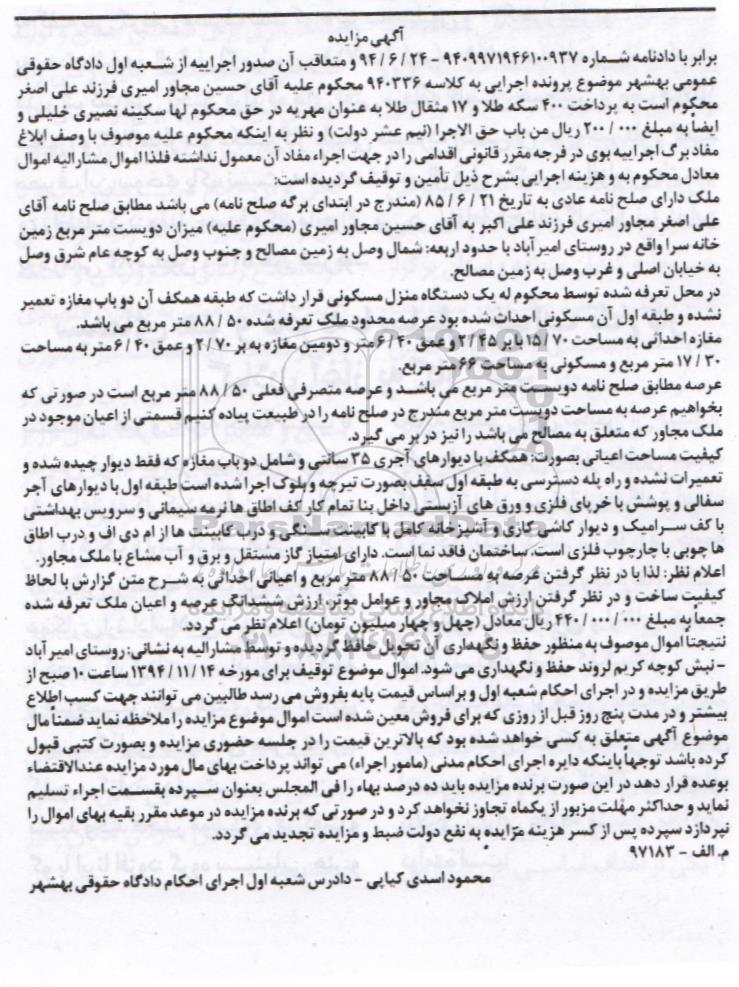 آگهی مزایده
برابر با دادنامه شماره ۹۴۰۹۹۷۱۹۴۶۱۰۰۹۳۷ – ۲۴ / ۶ / ۹۴ و متعاقب آن صدور اجراییه از شعبه اول دادگاه حقوقی
عمومی بهشهر موضوع پرونده اجرایی به کلاسه ۹۴۰۳۳۶ محکوم علیه آقای حسین مجاور امیری فرزند علی اصغر
محکوم است به پرداخت ۴۰۰ سکه طلا و ۱۷ مثقال طلا به عنوان مهریه در حق محکوم لها سکینه نصیری خلیلی و
ایضاً به مبلغ ۰۰۰ / ۲۰۰ ریال من باب حق الاجرا (نیم عشر دولت) و نظر به اینکه محکوم علیه موصوف با وصف ابلاغ
مفاد برگ اجراییه بوی در فرجه مقرر قانونی اقدامی را در جهت اجراء مفاد آن معمول نداشته فلذا اموال مشارالیه اموال
معادل محکوم به و هزینه اجرایی بشرح ذیل تأمین و توقیف گردیده است:
ملک دارای صلح نامه عادی به تاریخ ۲۱ / ۶ / ۸۵ (مندرج در ابتدای برگه صلح نامه) می باشد مطابق صلح نامه آقای
علی اصغر مجاور امیری فرزند علی اکبر به آقای حسین مجاور امیری (محکوم علیه) میزان دویست متر مربع زمین
خانه سرا واقع در روستای امیر آباد با حدود اربعه: شمال وصل به زمین مصالح و جنوب وصل به کوچه عام شرق وصل
به خیابان اصلی و غرب وصل به زمین مصالح.
در محل تعرفه شده توسط محکوم له یک دستگاه منزل مسکونی قرار داشت که طبقه همکف آن دو باب مغازه تعمیر
نشده و طبقه اول آن مسکونی احداث شده بود عرصه محدود ملک تعرفه شده ۵۰ / ۸۸ متر مربع می باشد.
مغازه احداثی به مساحت ۷۰ / ۱۵ با بر ۴۵ / ۲ و عمق ۴۰ / ۶ متر و دومین مغازه به بر ۷۰ / ۲ و عمق ۴۰ / ۶ متر به مساحت
۳۰ / ۱۷ متر مربع و مسکونی به مساحت ۶۶ متر مربع.
عرصه مطابق صلح نامه دویست متر مربع می باشد و عرصه متصرفی فعلی ۵۰ / ۸۸ متر مربع است در صورتی که
بخواهیم عرصه به مساحت دویست متر مربع مندرج در صلح نامه را در طبیعت پیاده کنیم قسمتی از اعیان موجود در
ملک مجاور که متعلق به مصالح می باشد را نیز در بر می گیرد.
کیفیت مساحت اعیانی بصورت: همکف با دیوارهای آجری ۳۵ سانتی و شامل دو باب مغازه که فقط دیوار چیده شده و
تعمیرات نشده و راه پله دسترسی به طبقه اول سقف بصورت تیرچه و بلوک اجرا شده است طبقه اول با دیوارهای آجر
سفالی و پوشش با خرپای فلزی و ورق های آزبستی داخل بنا تمام کار کف اطاق ها نرمه سیمانی و سرویس بهداشتی
با کف سرامیک و دیوار کاشی کاری و آشپزخانه کامل با کابینت سنگی و درب کابینت ها از ام دی اف و درب اطاق
ها چوبی با چارچوب فلزی است. ساختمان فاقد نما است. دارای امتیاز گاز مستقل و برق و آب مشاع با ملک مجاور.
اعلام نظر: لذا با در نظر گرفتن عرصه به مساحت ۵۰ / ۸۸ متر مربع و اعیانی احداثی به شرح متن گزارش با لحاظ
کیفیت ساخت و در نظر گرفتن ارزش املاک مجاور و عوامل موثر، ارزش ششدانگ عرصه و اعیان ملک تعرفه شده
جمعاً به مبلغ ۰۰۰ / ۰۰۰ / ۴۴۰ ریال معادل (چهل و چهار میلیون تومان) اعلام نظر می گردد.
نتیجتاً اموال موصوف به منظور حفظ و نگهداری آن تحویل حافظ گردیده و توسط مشارالیه به نشانی: روستای امیر آباد
– نبش کوچه کریم لروند حفظ و نگهداری می شود. اموال موضوع توقیف برای مورخه ۱۴ / ۱۱ / ۱۳۹۴ ساعت ۱۰ صبح از
طریق مزایده و در اجرای احکام شعبه اول و براساس قیمت پایه بفروش می رسد طالبین می توانند جهت کسب اطلاع
بیشتر و در مدت پنج روز قبل از روزی که برای فروش معین شده است اموال موضوع مزایده را ملاحظه نماید ضمناً مال
موضوع آگهی متعلق به کسی خواهد شده بود که بالاترین قیمت را در جلسه حضوری مزایده و بصورت کتبی قبول
کرده باشد توجهاً باینکه دایره اجرای احکام مدنی (مامور اجراء) می تواند پرداخت بهای مال مورد مزایده عندالاقتضاء
بوعده قرار دهد در این صورت برنده مزایده باید ده درصد بهاء را فی المجلس بعنوان سپرده بقسمت اجراء تسلیم
نماید و حداکثر مهلت مزبور از یکماه تجاوز نخواهد کرد و در صورتی که برنده مزایده در موعد مقرر بقیه بهای اموال را
نپردازد سپرده پس از کسر هزینه مزایده به نفع دولت ضبط و مزایده تجدید می گردد.
م. الف – ۹۷۱۸۳
محمود اسدی کیاپی – دادرس شعبه اول اجرای احکام دادگاه حقوقی بهشهر